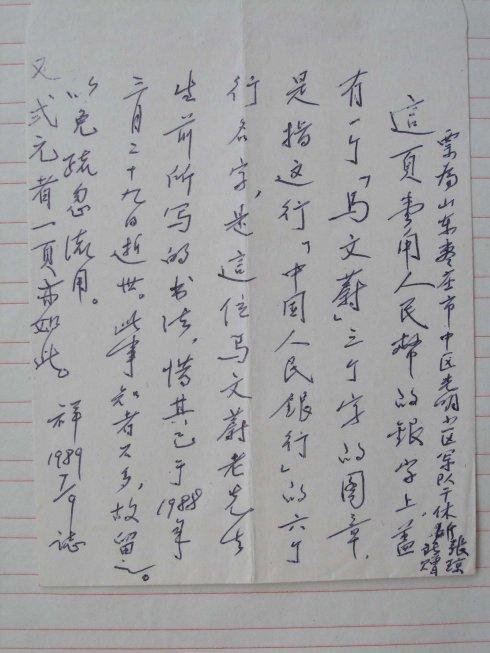 票为山东枣庄市中区光明小区军队干休所张琼赠
這頁壹角人民幣的銀字上,盖
有一个「马文蔚」三个字的图章,
是指这行「中国人民銀行」的六个
行名字,是這位马文蔚老先生
生前所写的书法,惜其已于1988年
三月二十九日逝世。此事知者不多,故留之。
以免疏忽流用。
又贰元者一頁亦如此。
祥1989 7/9誌